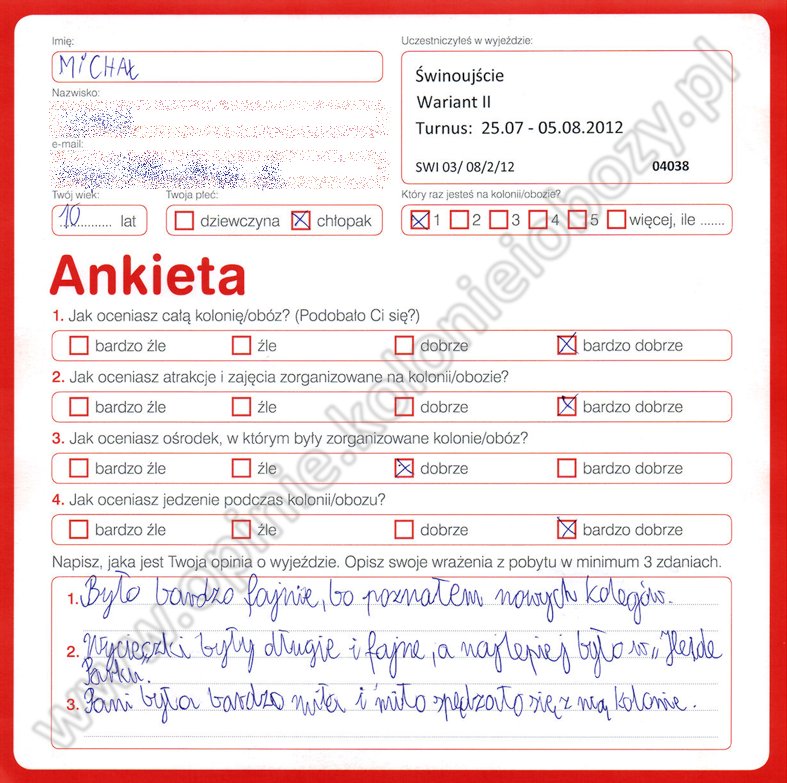 Imię:
MiCHAŁ
Nazwisko:
e-mail:
Twój wiek:
10 lat
Twoja płeć:
dziewczyna chłopak
Uczestniczyłeś w wyjeździe:
Świnoujście
Wariant II
Turnus: 25.07 - 05.08.2012
SWI 03/ 08/2/12 04038
Który raz jesteś na kolonii/obozie?
1 2 3 4 5 więcej, ile .......
Ankieta
1. Jak oceniasz całą kolonię/obóz? (Podobało Ci się?)
bardzo źle źle dobrze bardzo dobrze
2. Jak oceniasz atrakcje i zajęcia zorganizowane na kolonii/obozie?
bardzo źle źle dobrze bardzo dobrze
3. Jak oceniasz ośrodek, w którym były zorganizowane kolonie/obóz?
bardzo źle źle dobrze bardzo dobrze
4. Jak oceniasz jedzenie podczas kolonii/obozu?
bardzo źle źle dobrze bardzo dobrze
Napisz, jaka jest Twoja opinia o wyjeździe. Opisz swoje wrażenia z pobytu w minimum 3 zdaniach.
1. Było bardzo fajnie, bo poznałem nowych kolegów.
2. Wycieczki były długie i fajne, a najlepiej było w „Heide
Parku".
3. Pani była bardzo miła i miło spędzało się z nią kolonie.
www.opinie.kolonieiobozy.pl